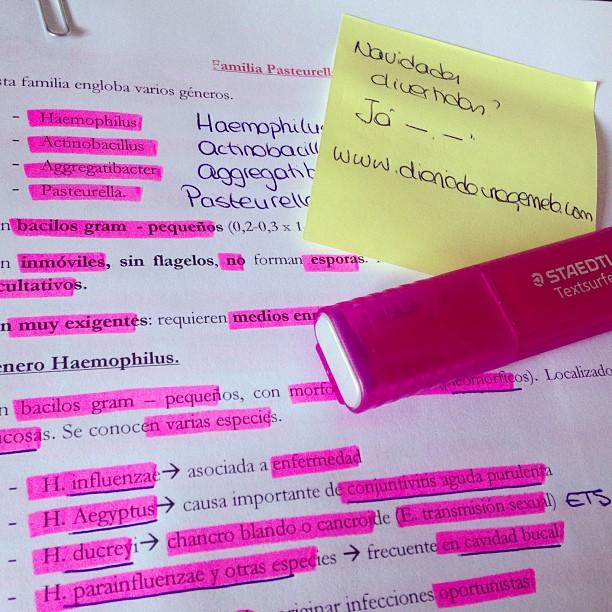 Familia Pasteurell
sta familia engloba varios géneros.
- Haemophilus Haemophilu
- Actinobacillus Actinobacill
- Aggregatibacter Aggregatib
- Pasteurella. Pasteurella
n bacilos gram - pequeños (0,2-0,3 x 1
n inmóviles, sin flagelos, no forman esporas.
cultativos.
n muy exigentes: requieren medios enr
nero Haemophilus.
n bacilos gram – pequeños, con morfo omórficos). Localizado
ucosas. Se conocen varias especies.
- H. influenzae → asociada a enfermedad
- H. Aegyptus → causa importante de conjuntivitis aguda purulenta
- H. ducreyi → chancro blando o cancroide (E. transmisión sexual) ETS
- H. parainfluenzae y otras especies → frecuente en cavidad bucal
originar infecciones oportunistas
Navidades
divertidas?
Já —.—"
STAEDTL
Textsurfe